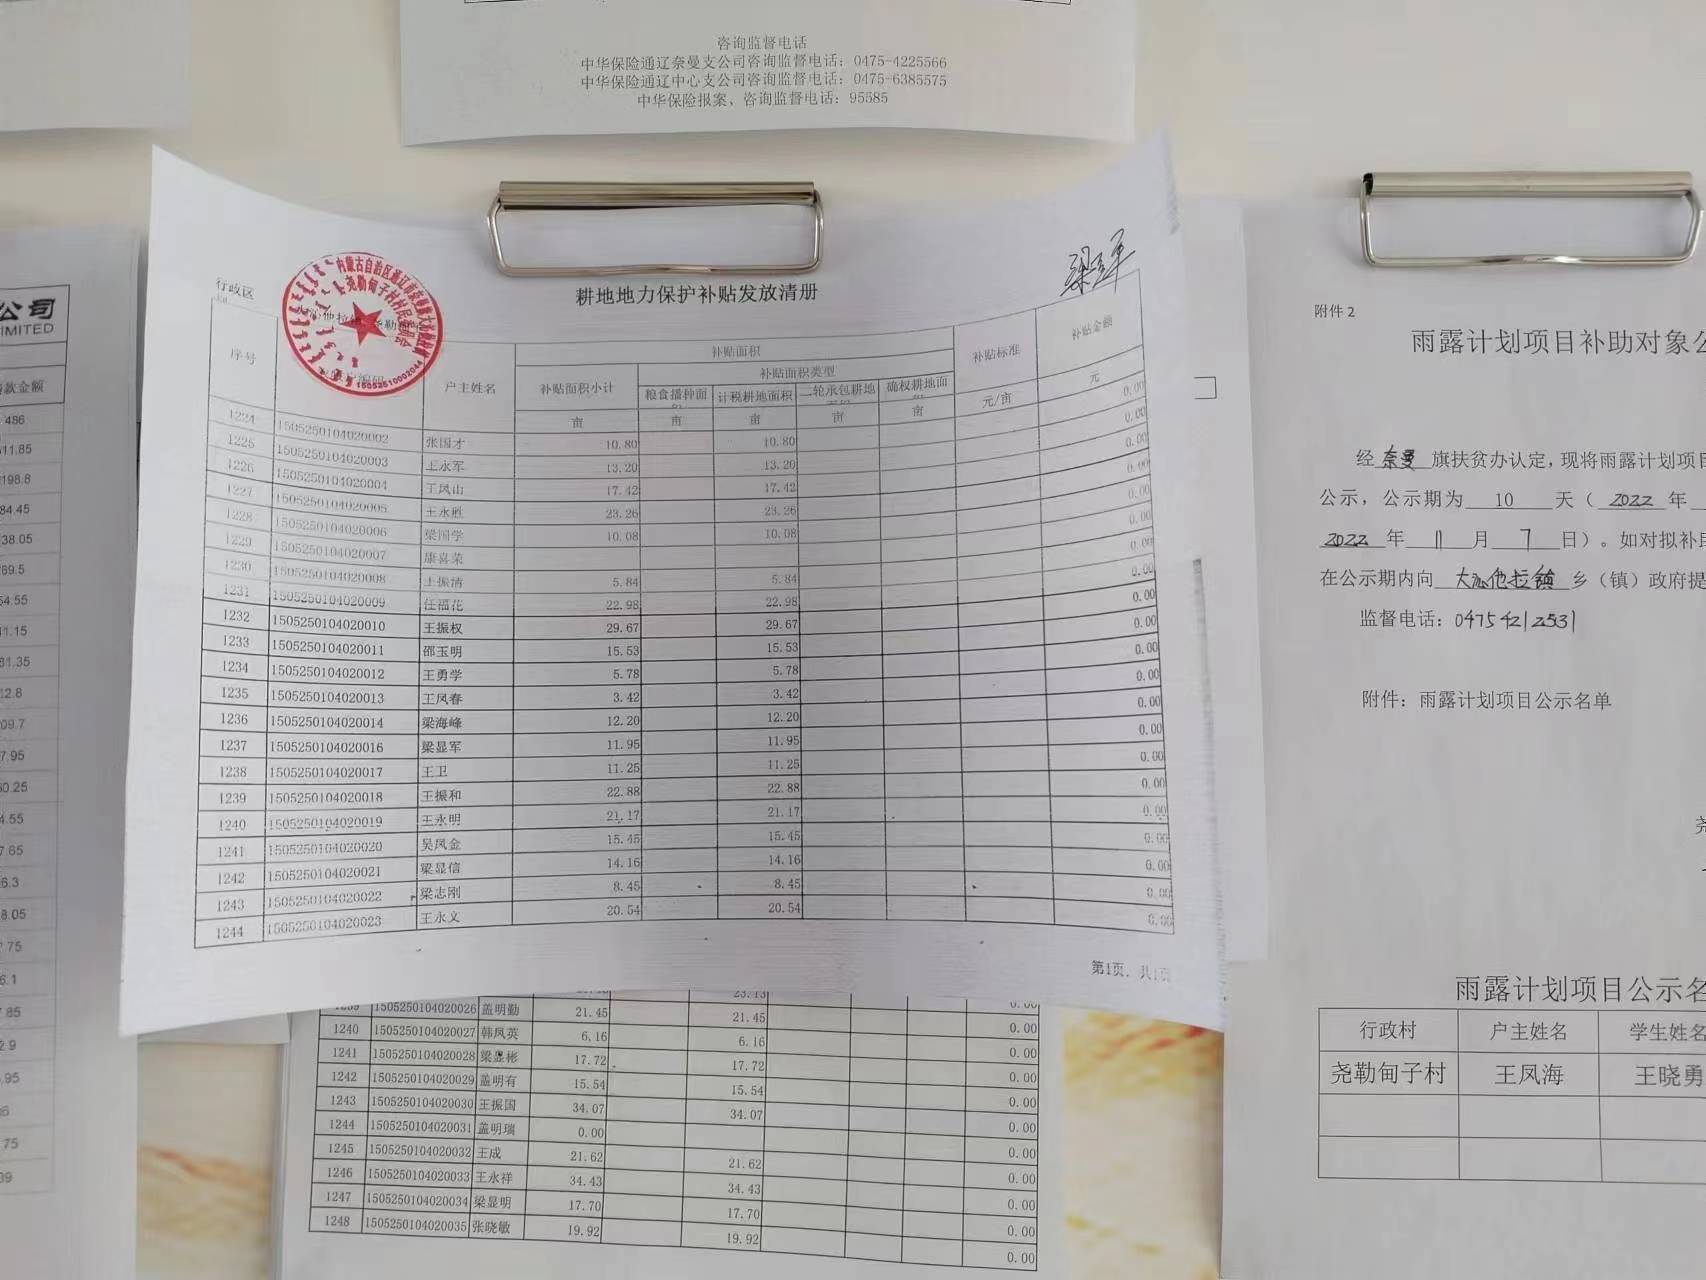 咨询监督电话
中华保险通辽奈曼支公司咨询监督电话：0475-4225566
中华保险通辽中心支公司咨询监督电话：0475-6385575
中华保险报案、咨询监督电话：95585
公司
IMITED
款金额
486
11.85
198.8
84.45
38.05
89.5
54.55
41.15
81.35
12.8
09.7
7.95
50.25
4.55
7.65
6.3
8.05
75
6.1
.85
2.9
.95
75
耕地地力保护补贴发放清册
行政区
内蒙古自治区通辽市奈曼旗大沁他拉镇
尧勒甸子村村民委员会
15052510002044
序号 户主姓名 补贴面积 补贴标准 补贴金额
补贴面积小计 补贴面积类型
粮食播种面 计税耕地面积 二轮承包耕地 确权耕地面
亩 亩 亩 亩 亩 元/亩 元
1224 1505250104020002 张国才 10.80 10.80 0.00
1225 1505250104020003 王永军 13.20 13.20 0.00
1226 1505250104020004 王凤山 17.42 17.42 0.00
1227 1505250104020005 王永胜 23.26 23.26 0.00
1228 1505250104020006 梁国学 10.08 10.08 0.00
1229 1505250104020007 康喜荣 0.00
1230 1505250104020008 王振清 5.84 5.84 0.00
1231 1505250104020009 任福花 22.98 22.98 0.00
1232 1505250104020010 王振权 29.67 29.67 0.00
1233 1505250104020011 邵玉明 15.53 15.53 0.00
1234 1505250104020012 王勇学 5.78 5.78 0.00
1235 1505250104020013 王凤春 3.42 3.42 0.00
1236 1505250104020014 梁海峰 12.20 12.20 0.00
1237 1505250104020016 梁显军 11.95 11.95 0.00
1238 1505250104020017 王卫 11.25 11.25 0.00
1239 1505250104020018 王振和 22.88 22.88 0.00
1240 1505250104020019 王永明 21.17 21.17 0.00
1241 1505250104020020 吴凤金 15.45 15.45 0.00
1242 1505250104020021 梁显信 14.16 14.16 0.00
1243 1505250104020022 梁志刚 8.45 8.45 0.00
1244 1505250104020023 王永文 20.54 20.54 0.00
第1页，共1页
23.13 0.00
1239 1505250104020026 盖明勤 21.45 21.45 0.00
1240 1505250104020027 韩凤英 6.16 6.16 0.00
1241 1505250104020028 梁显彬 17.72 17.72 0.00
1242 1505250104020029 盖明有 15.54 15.54 0.00
1243 1505250104020030 王振国 34.07 34.07 0.00
1244 1505250104020031 盖明瑞 0.00 0.00
1245 1505250104020032 王成 21.62 21.62 0.00
1246 1505250104020033 王永祥 34.43 34.43 0.00
1247 1505250104020034 梁显明 17.70 17.70 0.00
1248 1505250104020035 张晓敏 19.92 19.92 0.00
附件 2
雨露计划项目补助对象公
经 奈曼 旗扶贫办认定，现将雨露计划项目
公示，公示期为 10 天（ 2022 年
2022 年 11 月 7 日）。如对拟补
在公示期内向 大沁他拉镇 乡（镇）政府提
监督电话：04754212531
附件：雨露计划项目公示名单
雨露计划项目公示名
行政村 户主姓名 学生姓名
尧勒甸子村 王凤海 王晓勇